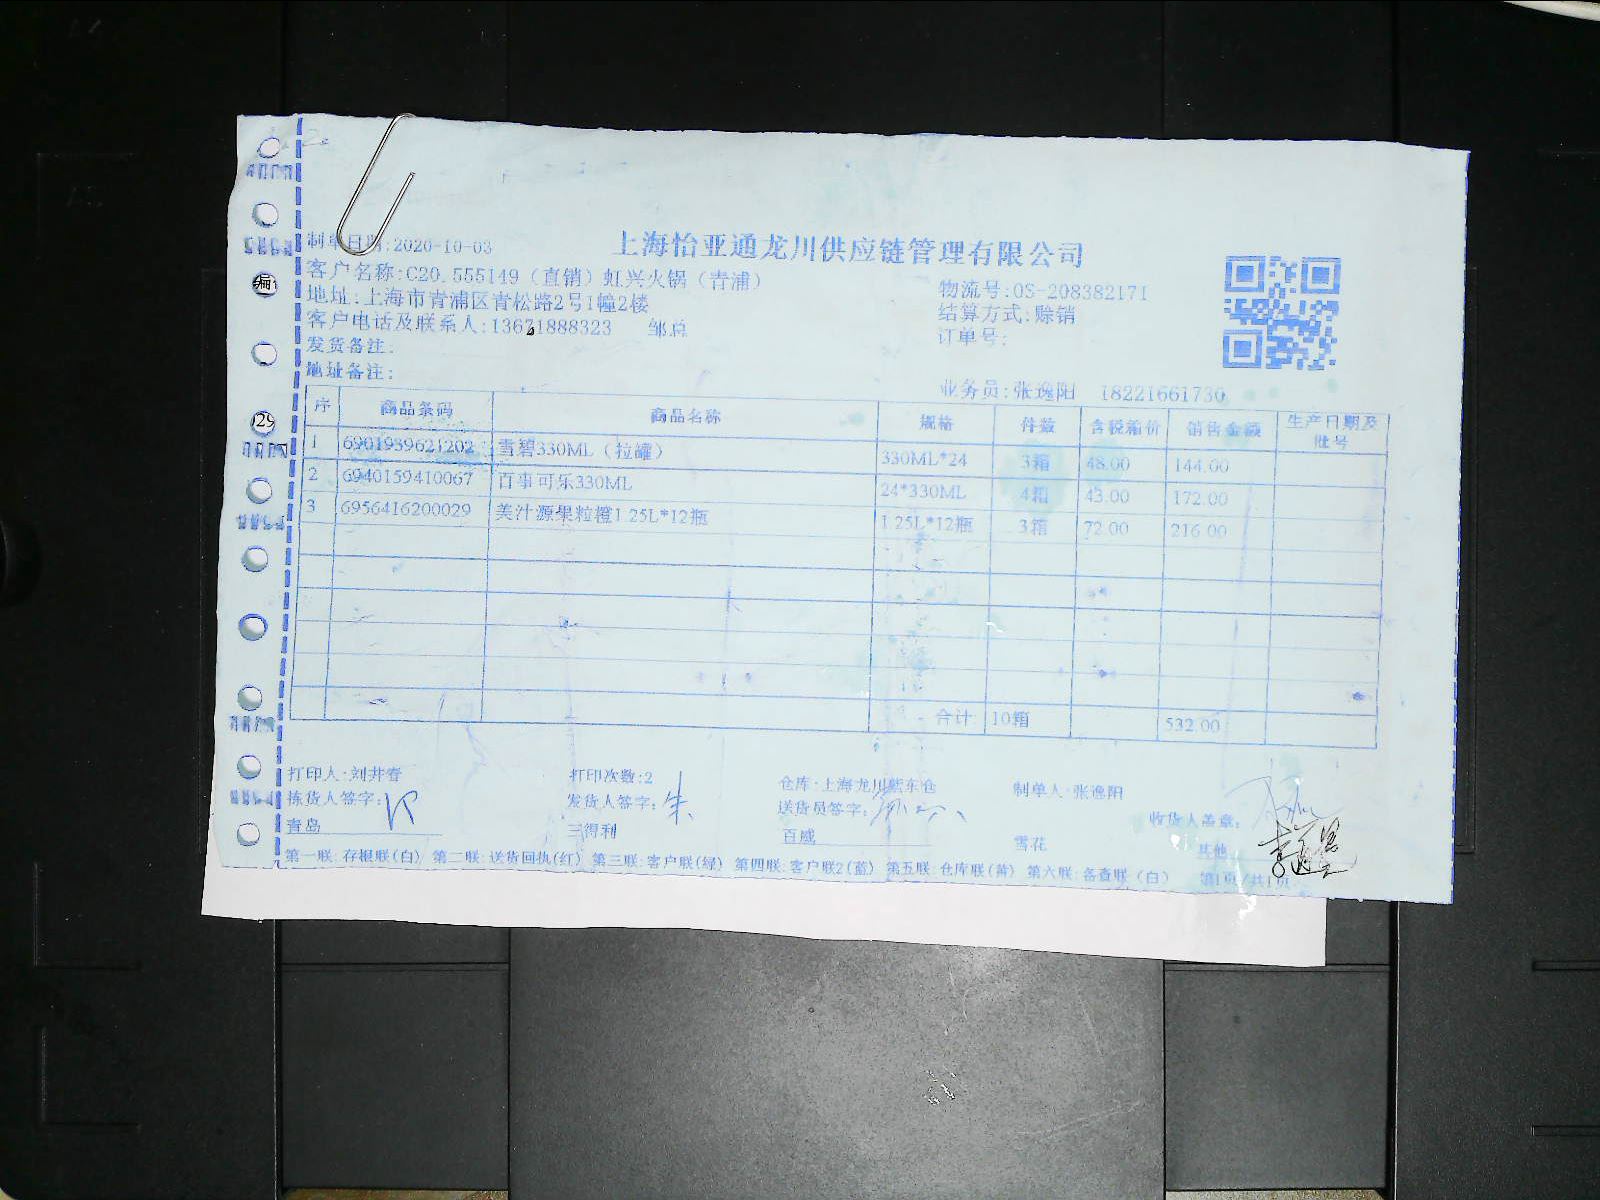 上海怡亚通龙川供应链管理有限公司
制单日期:2020-10-03
客户名称:C20.555149（直销）虹兴火锅（青浦）
物流号:OS-208382171
地址:上海市青浦区青松路2号1幢2楼
结算方式:赊销
客户电话及联系人:13671888323 邹总
订单号:
发货备注:
地址备注:
业务员:张逸阳 18221661730
序 商品条码 商品名称 规格 件数 含税箱价 销售金额 生产日期及批号
1 6901939621202 雪碧330ML（拉罐） 330ML*24 3箱 48.00 144.00
2 6940159410067 百事可乐330ML 24*330ML 4箱 43.00 172.00
3 6956416200029 美汁源果粒橙1.25L*12瓶 1.25L*12瓶 3箱 72.00 216.00
合计 10箱 532.00
打印人:刘井春 打印次数:2 仓库:上海龙川 东仓 制单人:张逸阳
拣货人签字: 发货人签字:朱 送货员签字: 收货人盖章:
青岛 三得利 百威 雪花 其他
第一联:存根联(白) 第二联:送货回执(红) 第三联:客户联(绿) 第四联:客户联2(蓝) 第五联:仓库联(黄) 第六联:备查联（白） 第1页/共1页